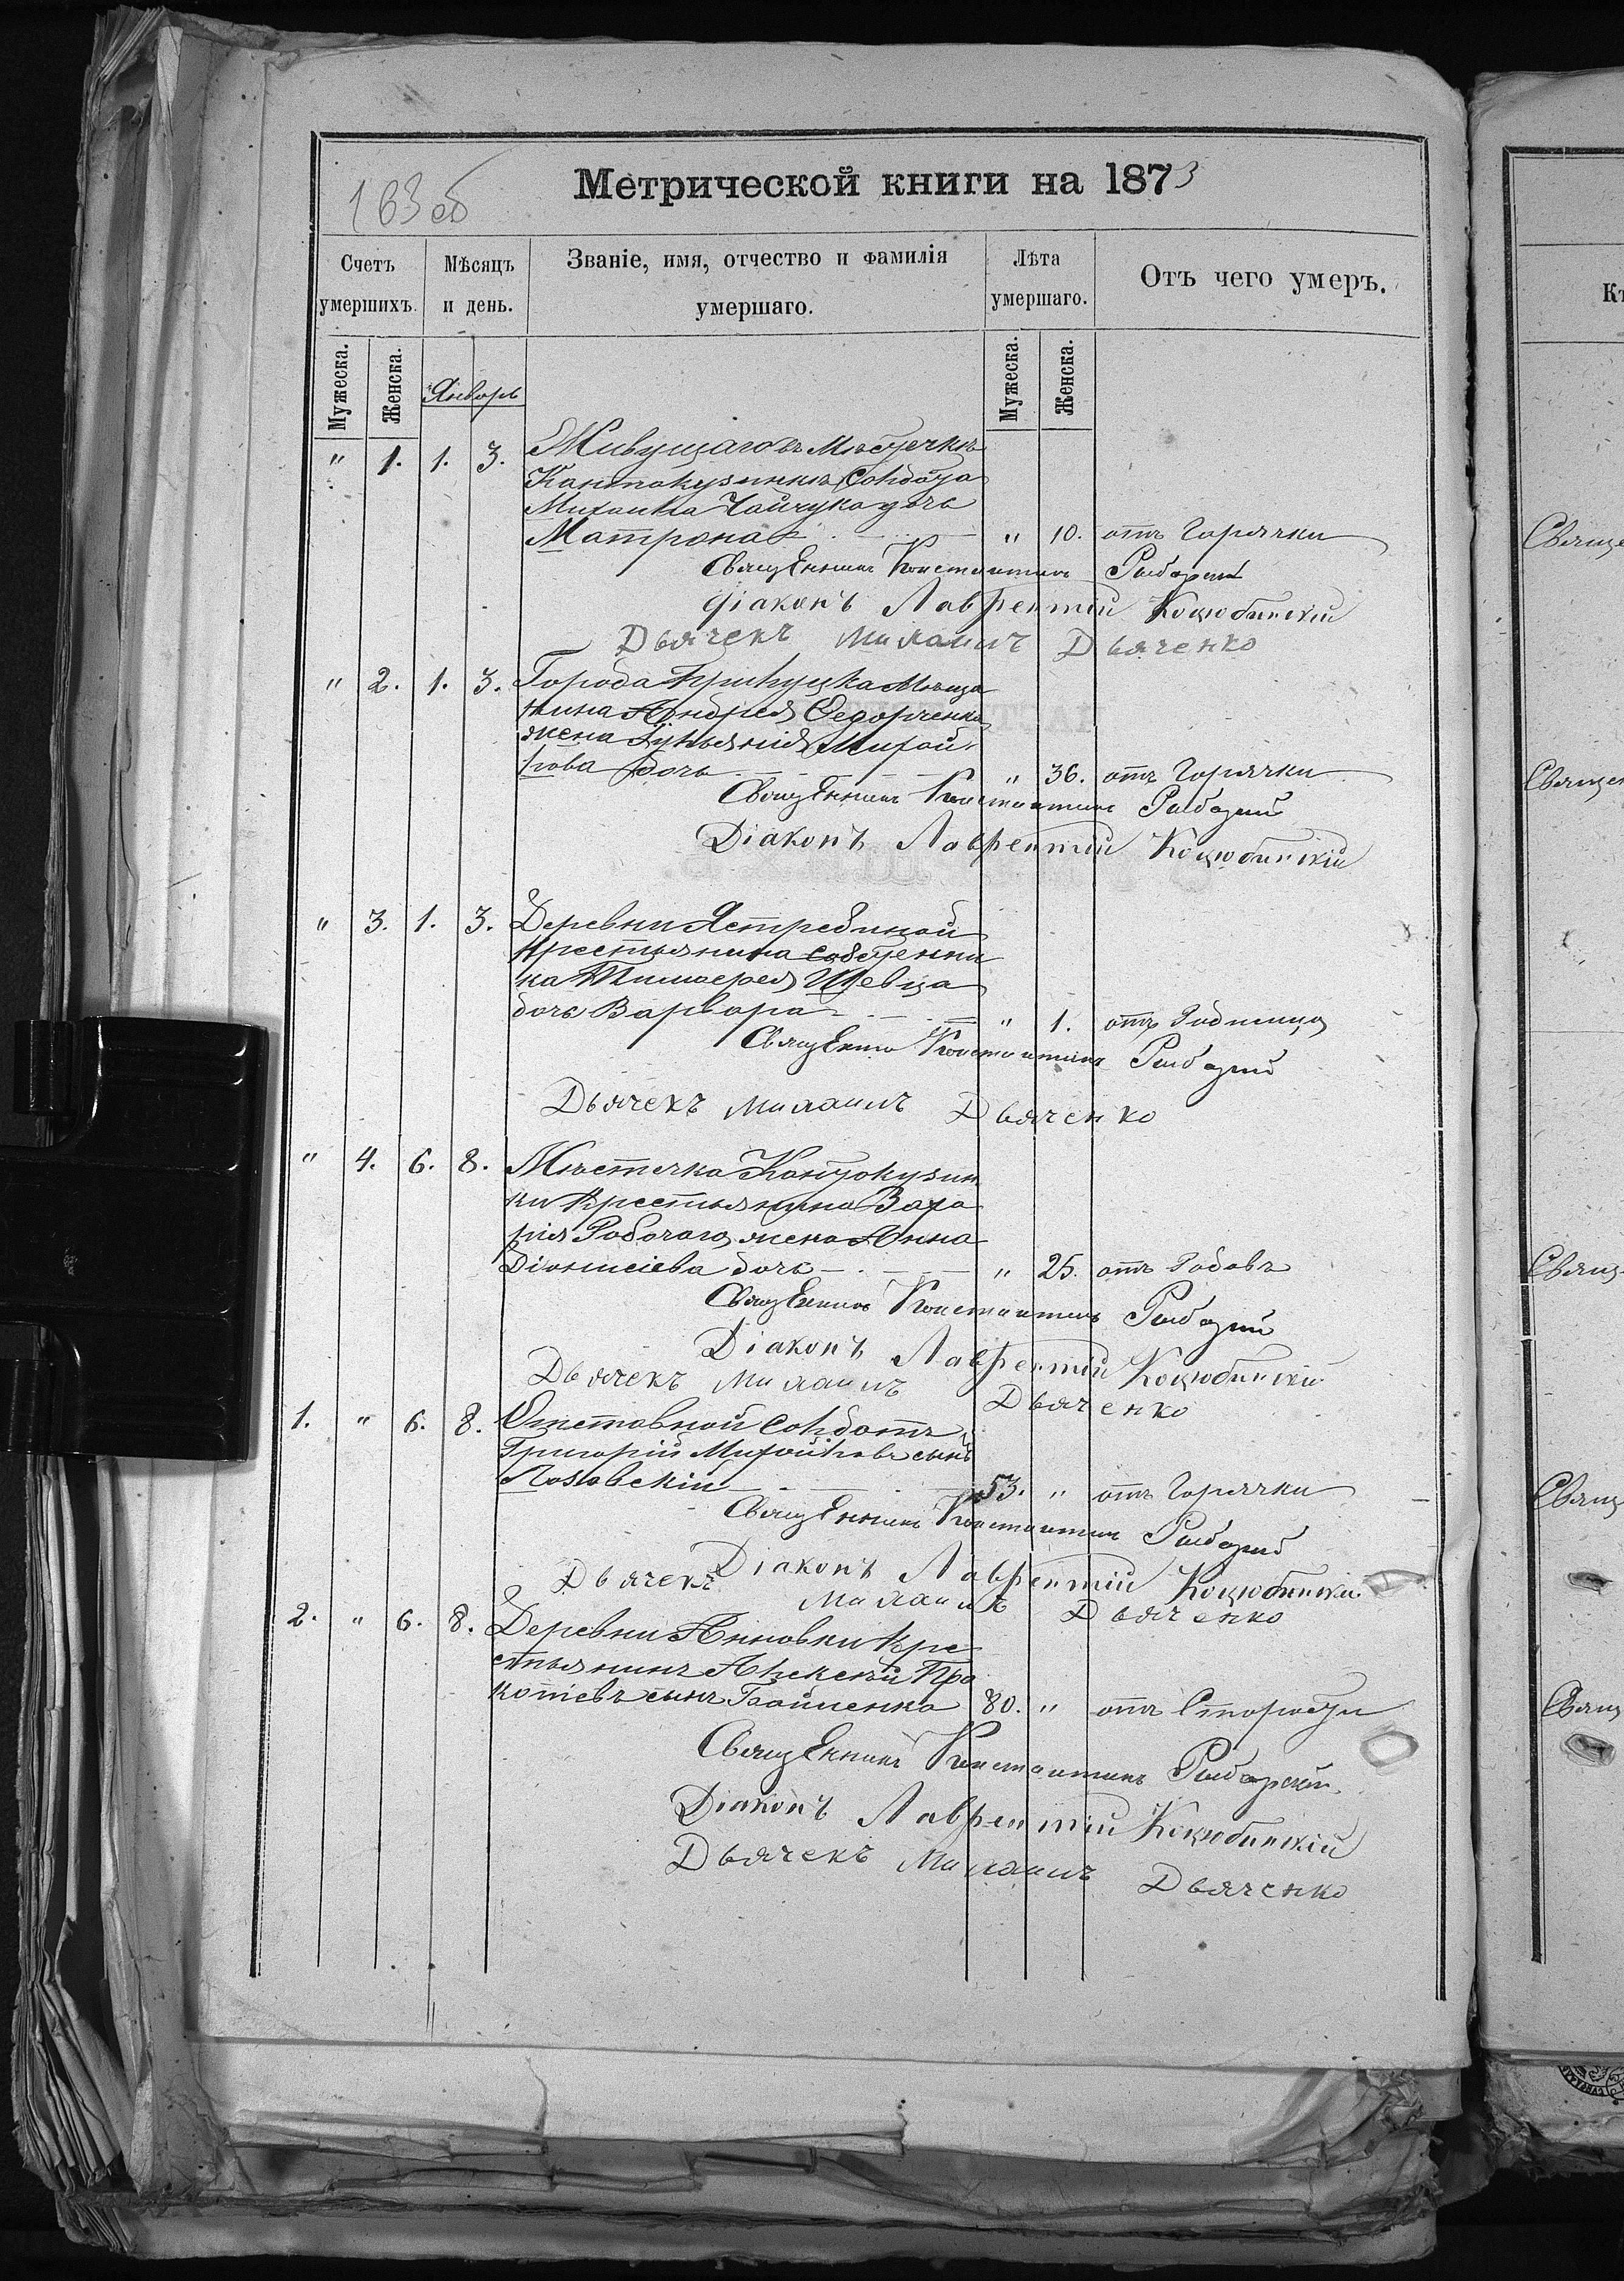 163 об
Метрической книги на 1873
Счетъ умершихъ.
Мѣсяцъ и день.
Званіе, имя, отчество и фамилія умершаго.
Лѣта умершаго.
Отъ чего умеръ.
Мужеска.
Женска.
Январь
Мужеска.
Женска.
" 1. 1. 3. Живущаго въ Мѣстечкѣ
Кантакузинкѣ Солдата
Михаила Чайчука дочь
Матрона " 10. отъ Горячки
Священникъ Константинъ
Діаконъ Лаврентій Коцюбинскій
Дьячекъ Михаилъ Дьяченко
" 2. 1. 3. Города Мѣща
нина Андрея Федорченка
жена Михай
лова дочь " 36. отъ Горячки
Священникъ Константинъ
Діаконъ Лаврентій Коцюбинскій
" 3. 1. 3. Деревни Ястребиной
Крестьянина собственни
ка Тимофея Шевца
дочь Варвара " 1. отъ
Священникъ Константинъ
Дьячекъ Михаилъ Дьяченко
" 4. 6. 8. Мѣстечка Кантокузин
ки Крестьянина Заха
рія Робочаго жена Анна
Діонисіева дочь " 25. отъ Родовъ
Священникъ Константинъ
Діаконъ Лаврентій Коцюбинскій
Дьячекъ Михаилъ Дьяченко
1. " 6. 8. Отставной солдатъ
Григорій Михайловъ сынъ
Лозовскій 53. " отъ Горячки
Священникъ Константинъ
Діаконъ Лаврентій Коцюбинскій
Дьячекъ Михаилъ Дьяченко
2. " 6. 8. Деревни Анновки Кре
стьянинъ Алексѣй Про
копіевъ сынъ 80. " отъ Старости
Священникъ Константинъ
Діаконъ Лаврентій Коцюбинскій
Дьячекъ Михаилъ Дьяченко